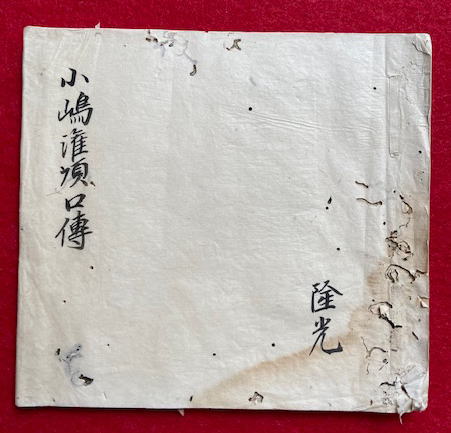 小嶋潅頂口傳
隆光